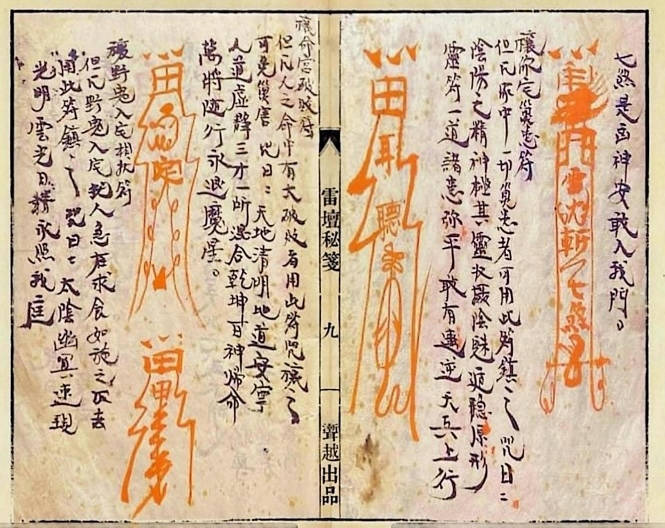 七煞是凶神安敢入我門。
斬七煞
禳你宅災恙符
但凡家中一切災恙者可用此符鎮之咒曰：
陰陽之精神極其靈收攝陰魅遁隱原形
靈符一道諸恙弥平敢有違逆天兵上行
田耳聽
雷壇秘箋
九
聾越出品
禳命宮破敗符
但凡人之命中有大破敗者用此符咒禳之
可免災厝咒曰：天地清明地道安寧
人道虛靜三才一所混合乾坤百神歸命
萬將隨行永退魔星。
田
禳野鬼入宅相扰符
但凡野鬼入宅扰人急在求食如施之不去
用此符鎮之咒曰：太陰幽冥速現
光明雲光日精永照我庭
田